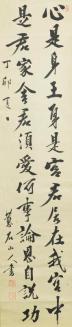 心是身王身是宮君居在我宮中
是君家舍君須愛何事論恩自說功
丁卯夏
石山人書